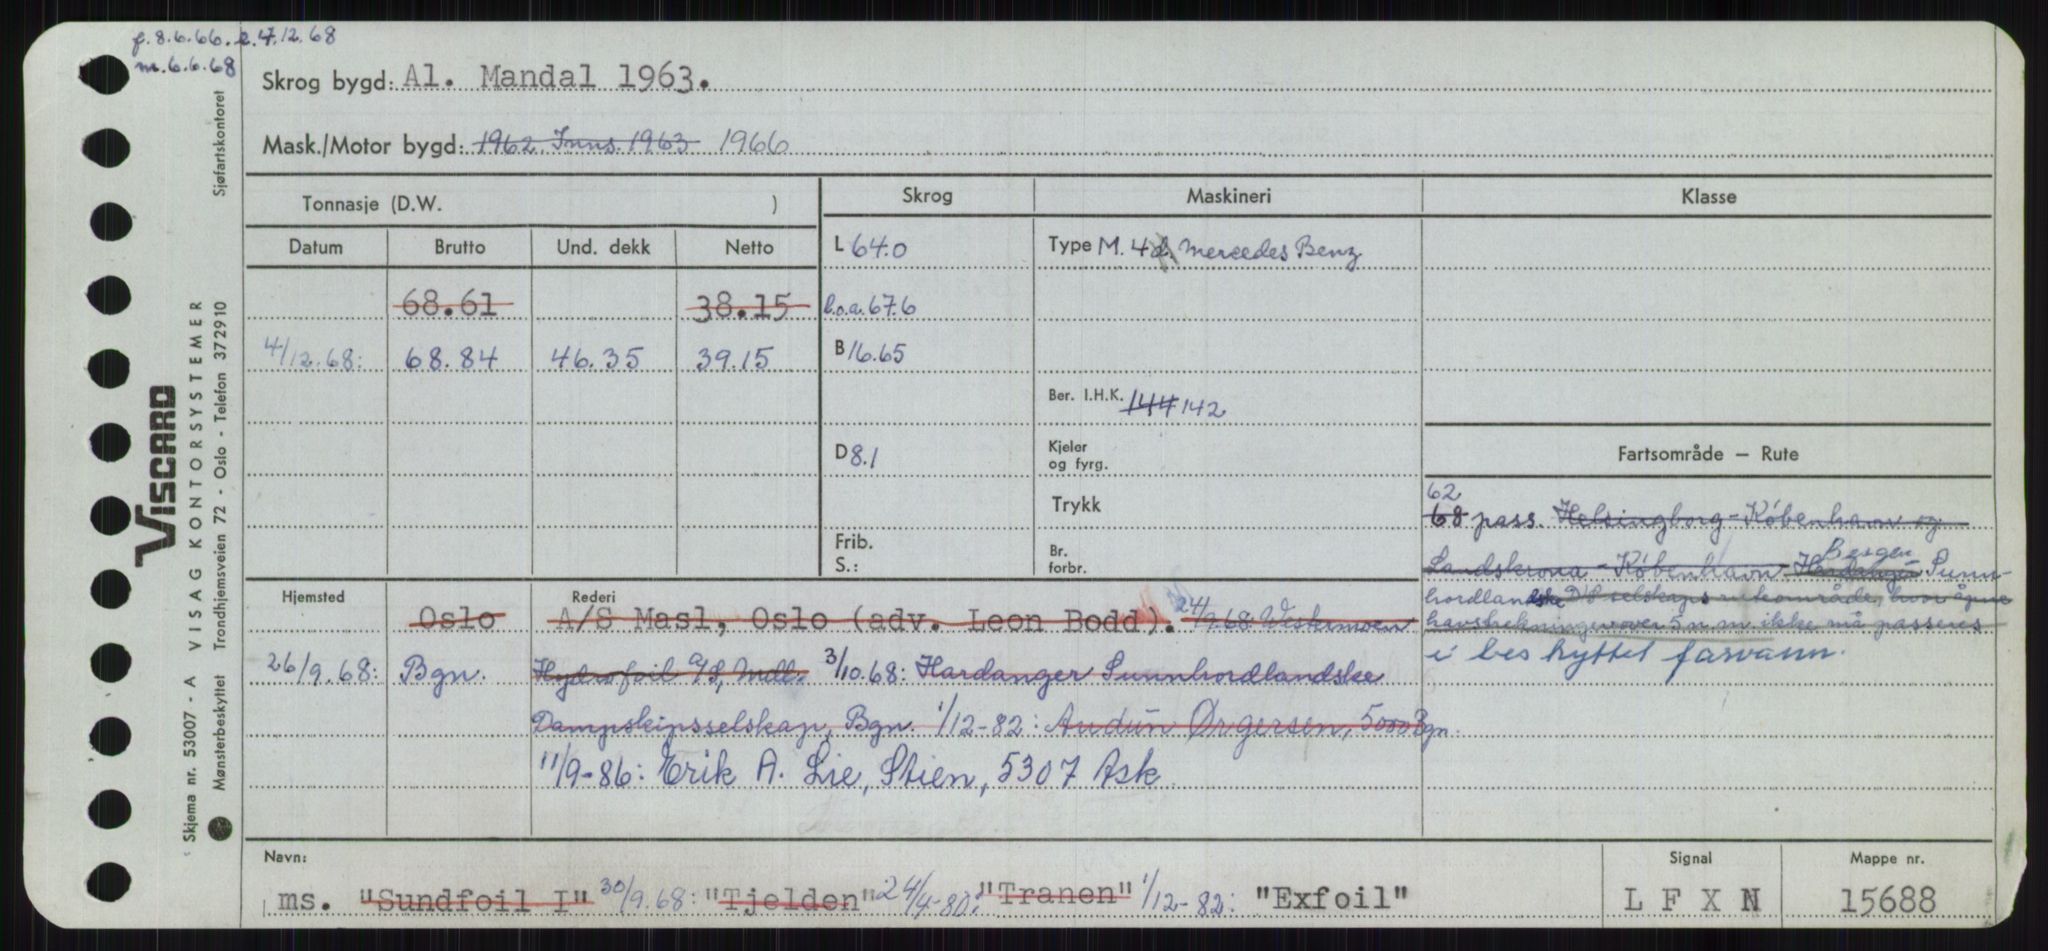 f. 8.6.66. e.4.12.68
m. 6.6.68
Skrog bygd: Al. Mandal 1963.
Mask./Motor bygd: 1962 Inns. 1963 1966
Tonnasje (D.W. )
Skrog
Maskineri
Klasse
Datum
Brutto
Und. dekk
Netto
L 64.0
Type M. 4 Mercedes Benz
68.61
38.15
l.o.a. 67.6
4/12.68:
68.84
46.35
39.15
B 16.65
Ber. I.H.K. 144 142
D 8.1
Kjeler
og fyrg.
Trykk
Frib.
S.:
Br.
forbr.
Fartsområde — Rute
62
68 pass. Helsingborg - København og
Landskrona - København Bergen Hardanger Sunn-
hordlandske D/S selskaps ruteområde, hvor åpne
havstrekninger over 5 n.m. ikke må passeres
i beskyttet farvann.
Hjemsted
Rederi
Oslo
A/S Masl, Oslo (adv. Leon Bodd). 24/9.68 Westermoen
26/9.68:
Bgn.
Hydrofoil A/S, Mdl. 3/10.68: Hardanger Sunnhordlandske
Dampskipsselskap, Bgn. 1/12-82: Audun Ørgersen, 5000 Bgn.
11/9-86: Erik A. Lie, Stien, 5307 Ask
Navn:
ms. "Sundfoil I" 30/9.68: "Tjelden" 24/4-80: "Tranen" 1/12-82: "Exfoil"
Signal
L F X N
Mappe nr.
15688
VISCARD
Skjema nr. 53007 - A VISAG KONTORSYSTEMER
Mønsterbeskyttet Trondhjemsveien 72 - Oslo - Telefon 372910 Sjøfartskontoret